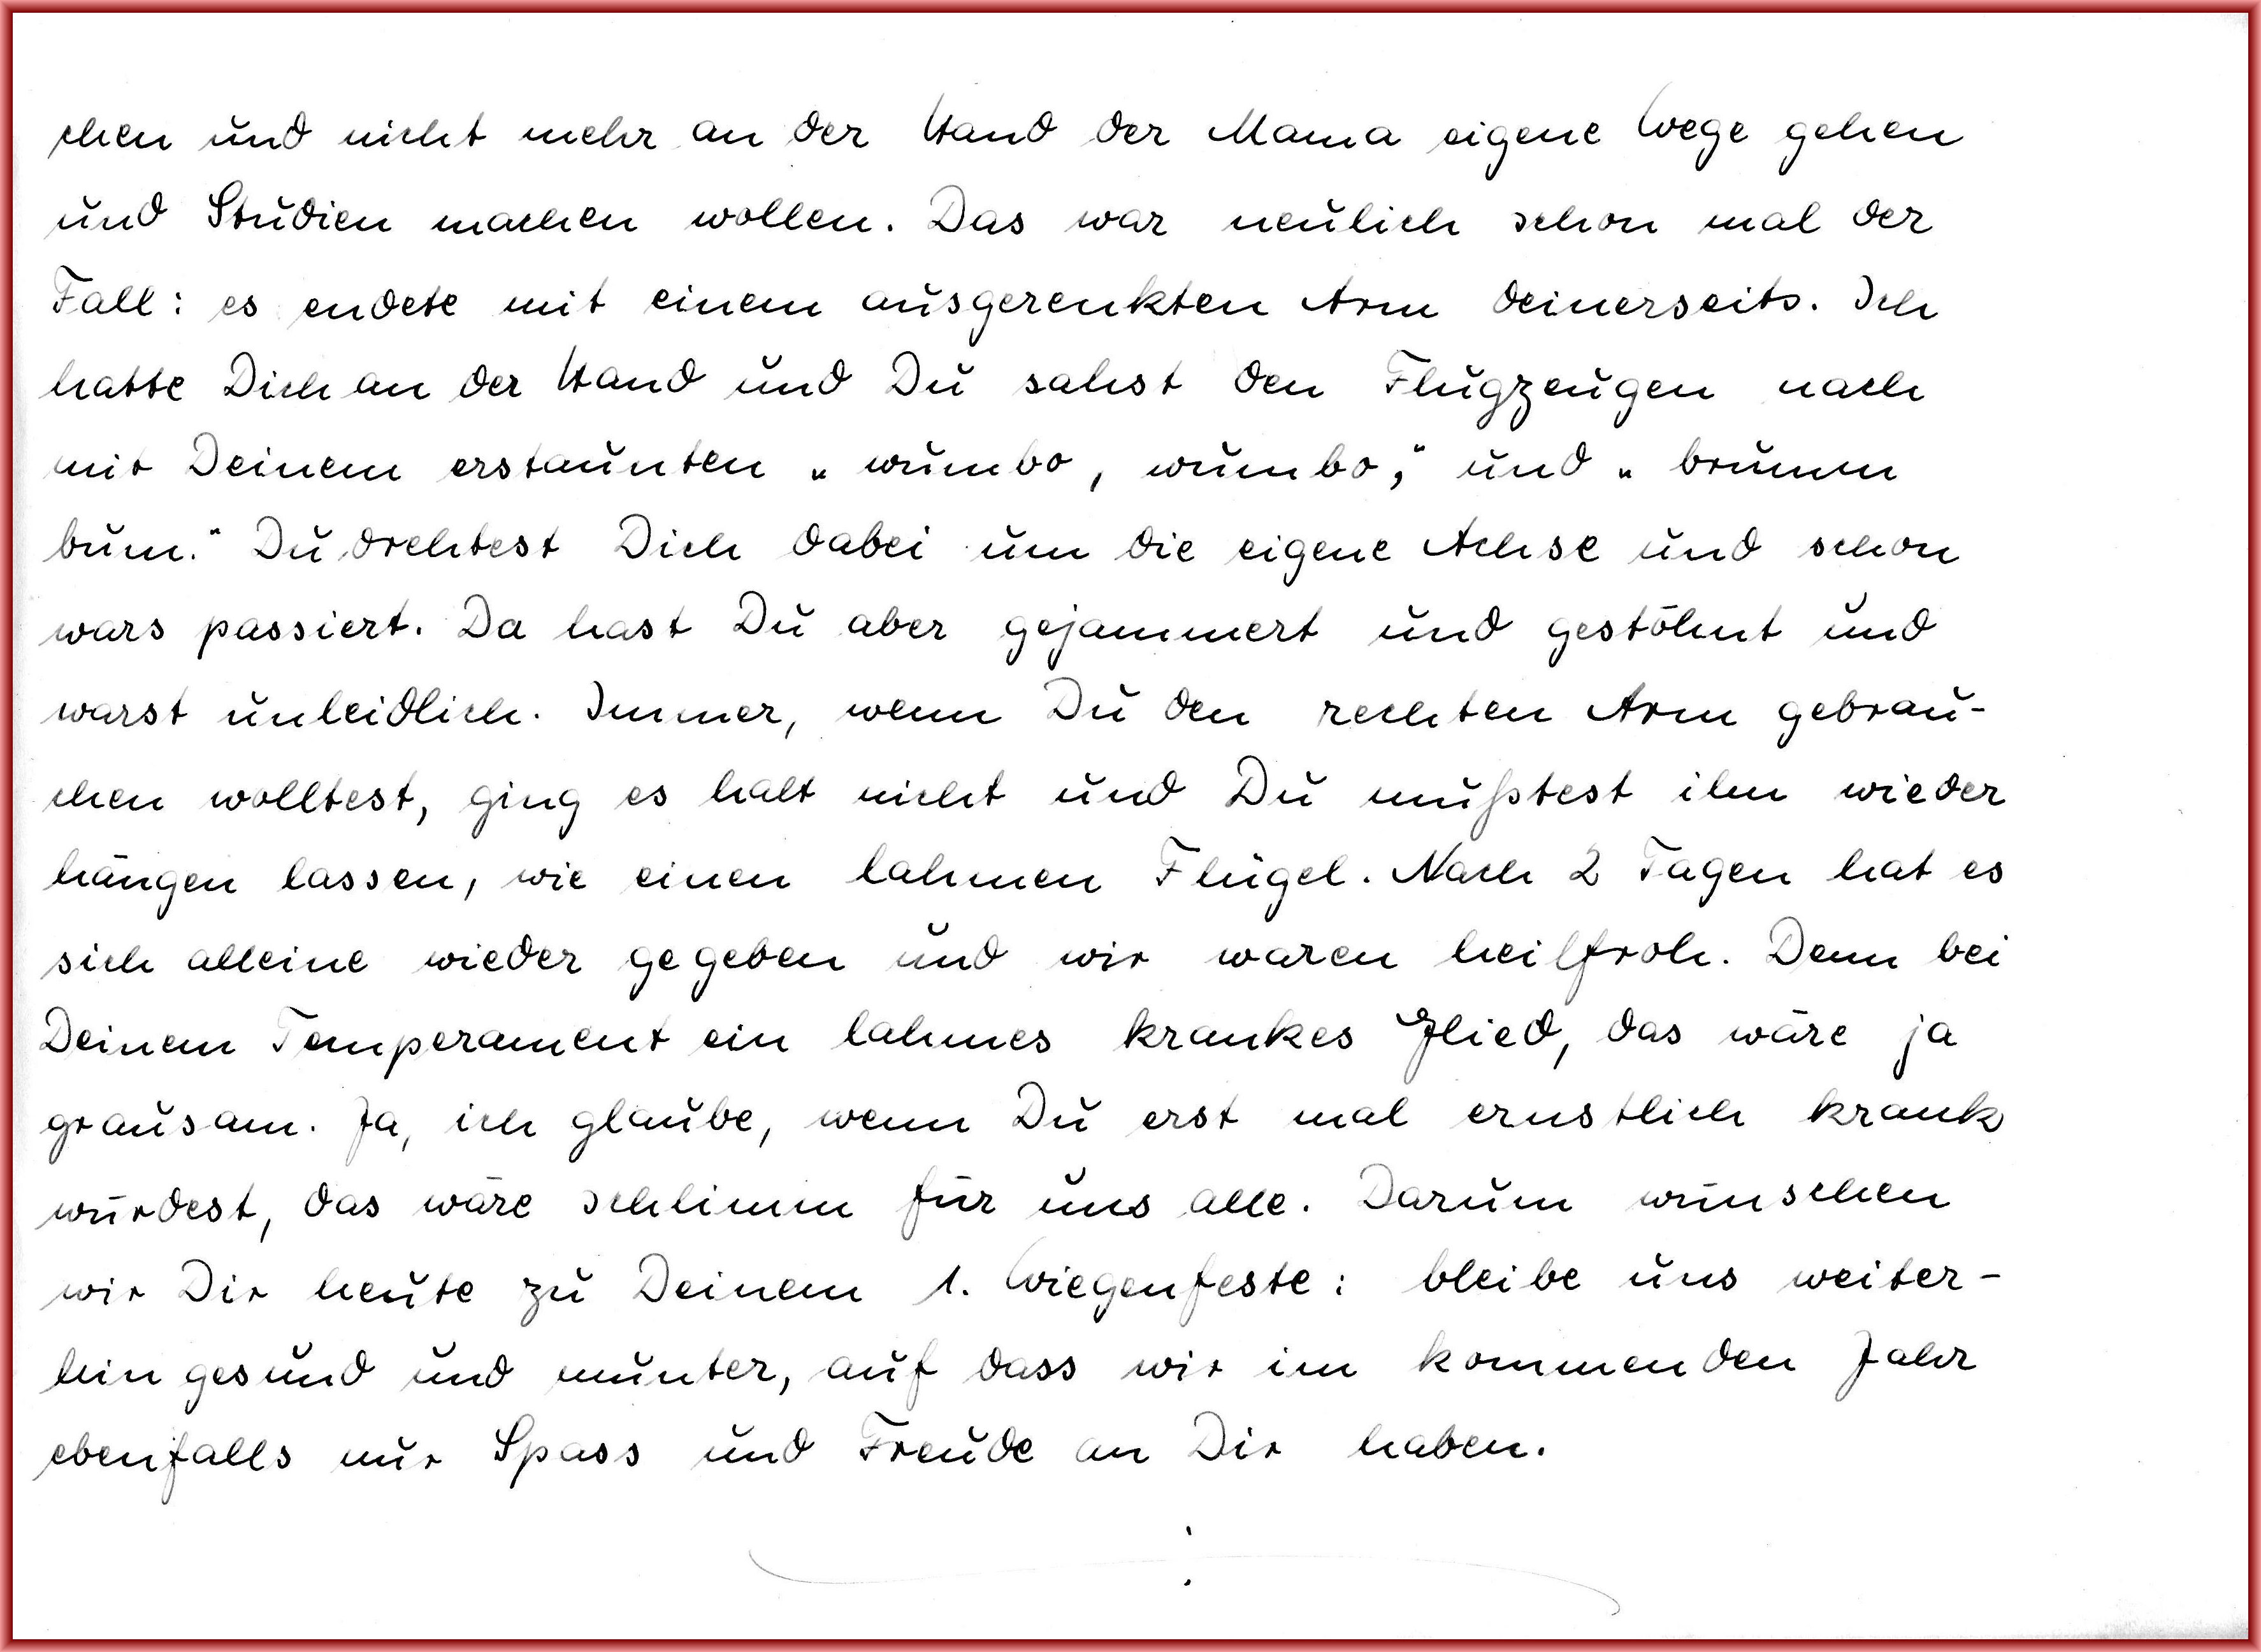 chen und nicht mehr an der Hand der Mama eigene Wege gehen
und Studien machen wollen. Das war neulich schon mal der
Fall: es endete mit einem ausgerenkten Arm deinerseits. Ich
hatte Dich an der Hand und Du sahst den Flugzeugen nach
mit Deinem erstaunten „wumbo, wumbo," und „brumm
bum." Du drehtest Dich dabei um die eigene Achse und schon
wars passiert. Da hast Du aber gejammert und gestöhnt und
warst unleidlich. Immer, wenn Du den rechten Arm gebrau-
chen wolltest, ging es halt nicht und Du mußtest ihn wieder
hängen lassen, wie einen lahmen Flügel. Nach 2 Tagen hat es
sich alleine wieder gegeben und wir waren heilfroh. Denn bei
Deinem Temperament ein lahmes krankes Glied, das wäre ja
grausam. Ja, ich glaube, wenn Du erst mal ernstlich krank
würdest, das wäre schlimm für uns alle. Darum wünschen
wir Dir heute zu Deinem 1. Wiegenfeste: bleibe uns weiter-
hin gesund und munter, auf dass wir im kommenden Jahr
ebenfalls nur Spass und Freude an Dir haben.